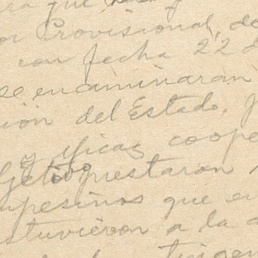 ra que
or Provisional, de
con fecha 22 d
se encaminaran
ión del Estado,
y eficaz coope
prestaron
mpesinos que e
stuvieron a la